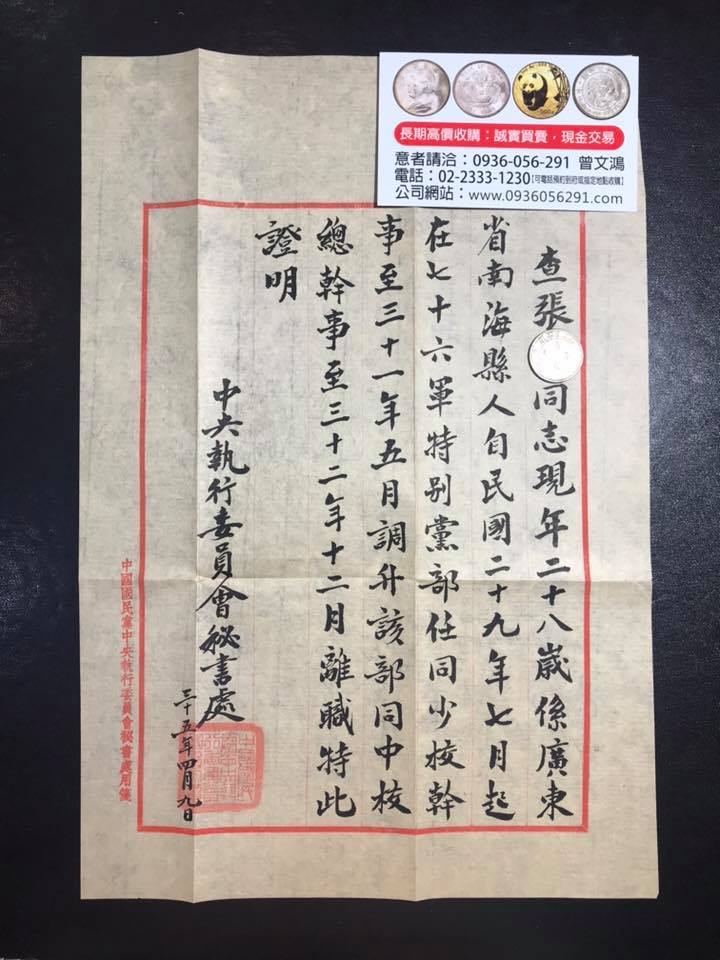 長期高價收購：誠實買賣，現金交易
意者請洽：0936-056-291 曾文鴻
電話：02-2333-1230【可電話預約到府或指定地點收購】
公司網站：www.0936056291.com
查張 同志現年二十八歲係廣東
省南海縣人自民國二十九年七月起
在七十六軍特别黨部任同少校幹
事至三十一年五月調升該部同中校
總幹事至三十二年十二月離職特此
證明
中央執行委員會秘書處
三十五年四月九日
中國國民黨中央執行委員會秘書處用箋